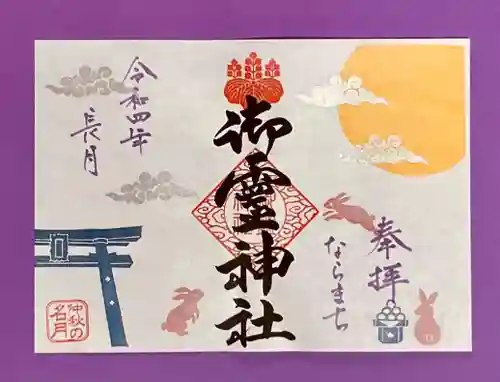 奉拝
ならまち
御霊神社
令和四年
長月
仲秋の
名月